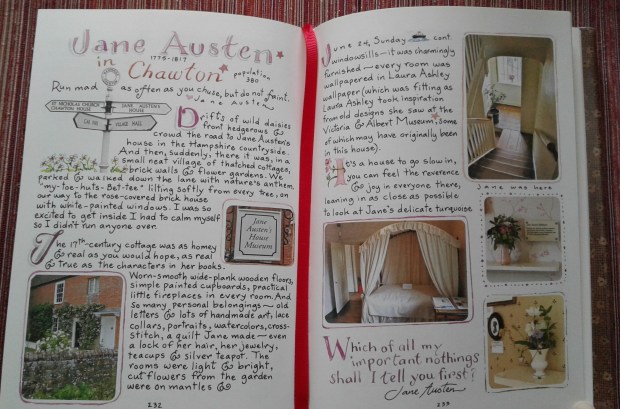 Jane Austen
1775-1817
in Chawton
population
380
Run mad as often as you chuse, but do not faint.
Jane Austen
ST. NICHOLAS CHURCH
CHAWTON HOUSE
JANE AUSTEN'S
HOUSE
VILLAGE HALL
Drifts of wild daisies
front hedgerows &
crowd the road to Jane Austen's
house in the Hampshire countryside.
And then, suddenly, there it was, in a
small neat village of thatched cottages,
brick walls & flower gardens. We
parked & walked down the lane with nature's anthem,
"my-toe-hurts-Bet-tee" lilting softly from every tree, on
our way to the rose-covered brick house
with white-painted windows. I was so
excited to get inside I had to calm myself
so I didn't run anyone over.
Jane
Austen's
House
Museum
The 17th-century cottage was as homey
& real as you would hope, as real
& true as the characters in her books.
Worn-smooth wide-plank wooden floors,
simple painted cupboards, practical
little fireplaces in every room. And
so many personal belongings — old
letters & lots of handmade art; lace
collars, portraits, watercolors, cross-
stitch, a quilt Jane made — even
a lock of her hair, her jewelry,
teacups & silver teapot. The
rooms were light & bright,
cut flowers from the garden
were on mantles &
232
June 24, Sunday cont.
windowsills — it was charmingly
furnished — every room was
wallpapered in Laura Ashley
wallpaper (which was fitting as
Laura Ashley took inspiration
from old designs she saw at the
Victoria & Albert Museum, some
of which may have originally been
in this house).
It's a house to go slow in,
you can feel the reverence
& joy in everyone there,
leaning in as close as possible
to look at Jane's delicate turquoise
Jane was here
Which of all my
important nothings
shall I tell you first?
Jane Austen
233